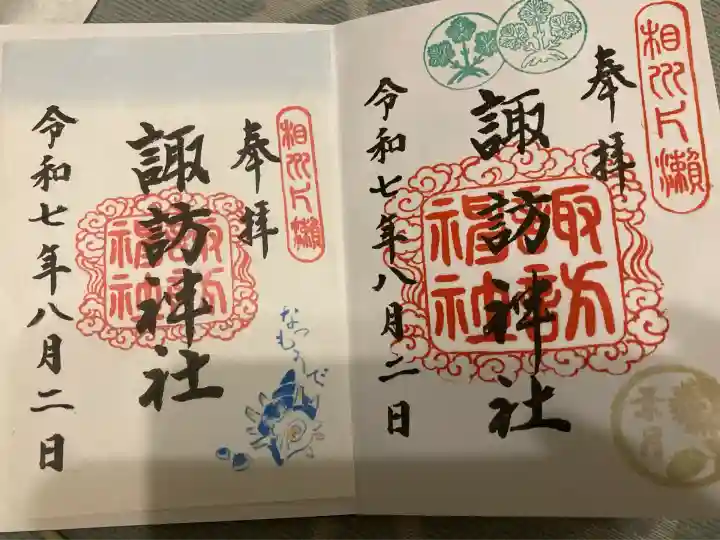 相州片瀬
奉拝
諏訪神社
諏訪神社
令和七年八月二日
なつもうで
相州片瀬
奉拝
諏訪神社
諏訪神社
令和七年八月二日